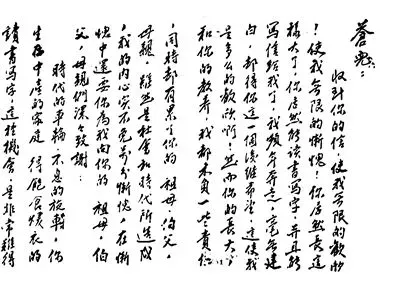 收到你的信，使我無限的歡欣
！使我無限的慚愧！你居然長這
樣大了，你居然能讀書寫字，並且能
寫信給我了，我幾年奔走，毫無建
白，卻得你這一個後繼希望，這使我
是多么的歡欣呵！然而你的長大
和你的教養，我都未負一些責任
，同時都有累了你的 祖母，伯父，
母親，雖然是社會和時代所造成
，我的內心實不免萬分慚愧，在慚
愧中還要你為我向你的 祖母，伯
父，母親們深深致謝！
時代的車輪 不息的旋轉，你
生在中產的家庭 得飽食煖衣的
讀書寫字，這種機會，是非常難得